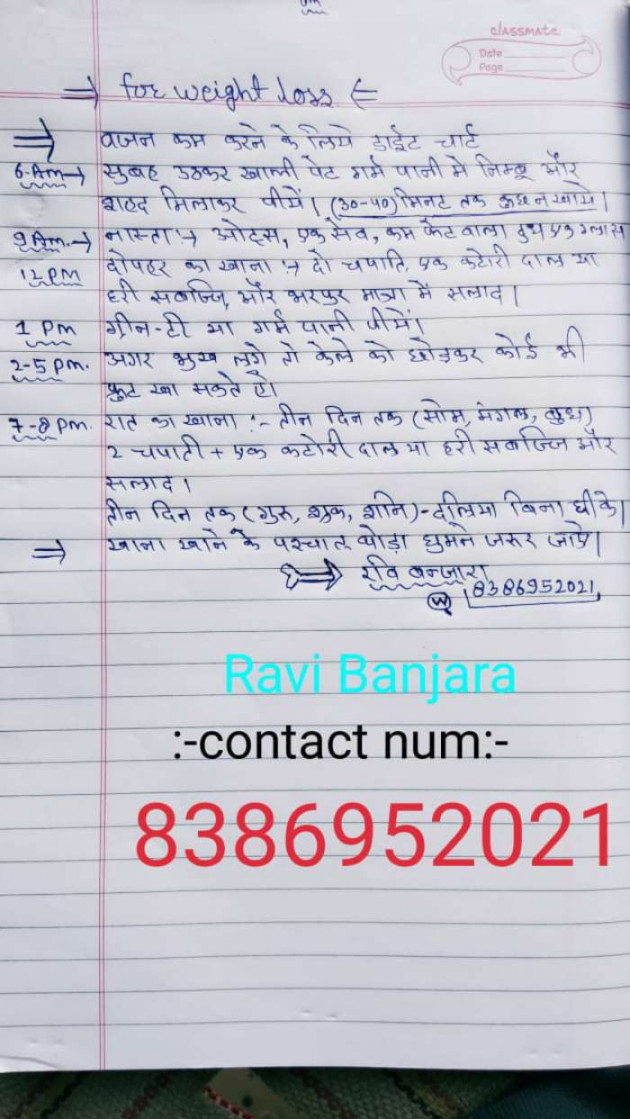 classmate
Date
Page
⇒ for weight loss ⇐
⇒ वजन कम करने के लिये डाईट चार्ट
6-Am→ सुबह उठकर खाली पेट गर्म पानी में निम्बू और
शहद मिलाकर पीयें। (30-40) मिनट तक कुछ न खाये।
9 Am.→ नास्ता :→ ओट्स, एक सेव, कम फेट वाला दुध एक ग्लास
12 PM दोपहर का खाना :→ दो चपाति, एक कटोरी दाल या
हरी सबज्जि, और भरपुर मात्रा में सलाद।
1 PM ग्रीन-टी या गर्म पानी पीयें।
2-5 PM. अगर भुख लगे तो केले को छोड़कर कोई भी
फ्रुट खा सकते है।
7-8 PM. रात का खाना :- तीन दिन तक (सोम, मंगल, बुध)
2 चपाती + एक कटोरी दाल या हरी सबज्जि और
सलाद।
तीन दिन तक (गुरु, शुक्र, शनि)-दलिया बिना घी के।
⇒ खाना खाने के पश्चात थोड़ा घुमने जरूर जाऐ।
⇒ रवि बन्जारा
W 8386952021
Ravi Banjara
:-contact num:-
8386952021